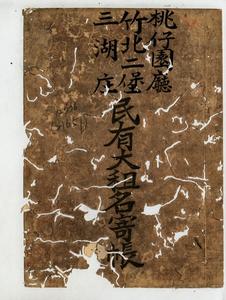 桃仔園廳
竹北二堡
三湖庄
民有大租名寄帳